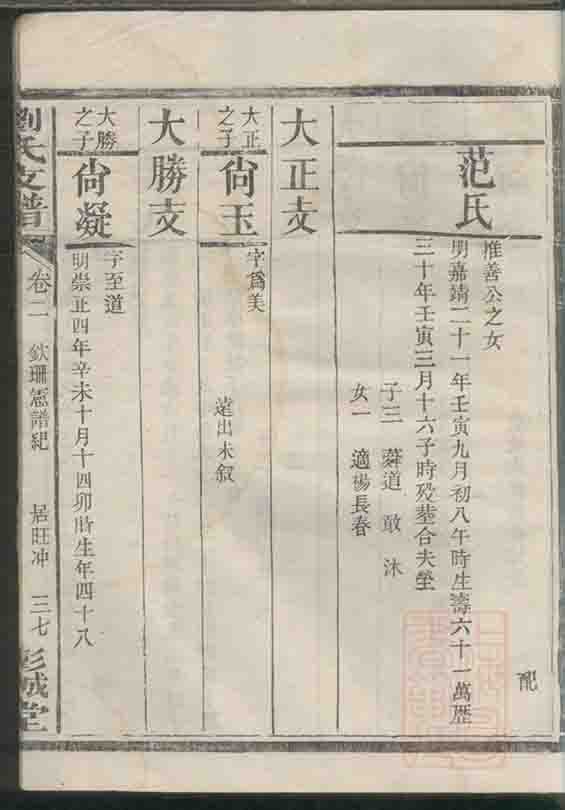 配
范氏
惟善公之女
明嘉靖二十一年壬寅九月初八午時生壽六十一萬歷
三十年壬寅三月十六子時歿塟合夫塋
子三 蕣道 敢 沐
女一 適楊長春
大正支
大正
之子
尙玉
字爲美
遠出未叙
大勝支
大勝
之子
尙凝
字至道
明崇正四年辛未十月十四卯時生年四十八
劉氏支譜
卷二
欽珊 譜紀
居旺冲
三七
彭城堂